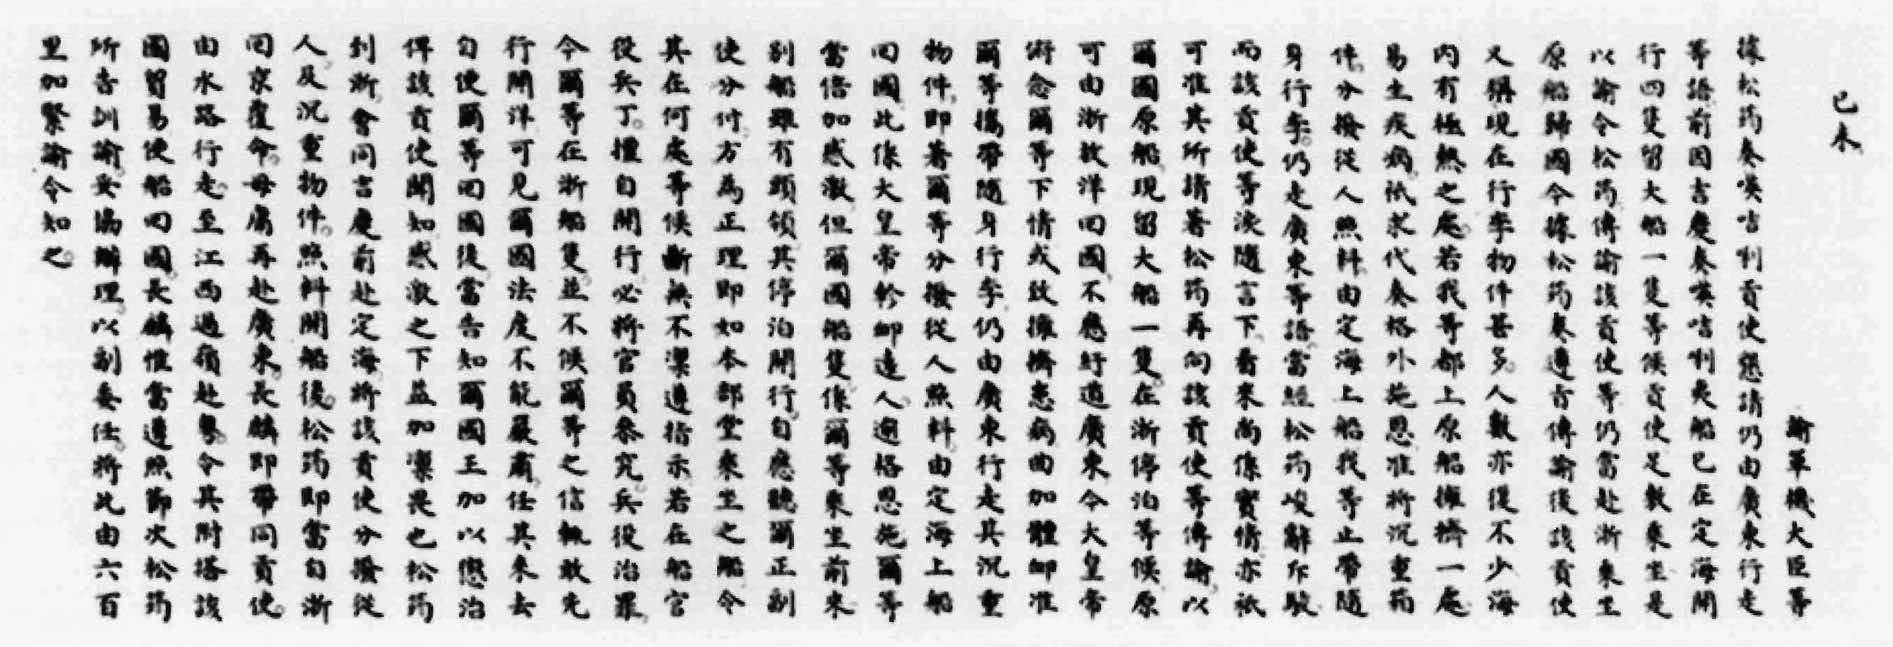 己未
諭軍機大臣等
據松筠奏𠸄咭唎貢使懇請仍由廣東行走
等語前因吉慶奏𠸄咭唎夷船已在定海開
行四隻留大船一隻等候貢使足敷乘坐是
以諭令松筠傳諭該貢使等仍當赴浙乘坐
原船歸國今據松筠奏遵旨傳諭後該貢使
又稱現在行李物件甚多人數亦復不少海
內有極熱之處若我等都上原船擁擠一處
易生疾病祇求代奏格外施恩准將沉重箱
件分撥從人照料由定海上船我等止帶隨
身行李仍走廣東等語當經松筠峻辭斥駁
而該貢使等淚隨言下看來尚係實情亦祇
可准其所請著松筠再向該貢使等傳諭以
爾國原船現留大船一隻在浙停泊等候原
可由浙放洋回國不應紆道廣東今大皇帝
俯念爾等下情或致擁擠患病曲加體卹准
爾等攜帶隨身行李仍由廣東行走其沉重
物件即著爾等分撥從人照料由定海上船
回國此係大皇帝軫卹遠人逾格恩施爾等
當倍加感激但爾國船隻係爾等乘坐前來
別船雖有頭領其停泊開行自應聽爾正副
使分付方為正理即如本部堂乘坐之船令
其在何處等候斷無不凜遵指示若在船官
役兵丁擅自開行必將官員叅究兵役治罪
今爾等在浙船隻並不候爾等之信輒敢先
行開洋可見爾國法度不能嚴肅任其來去
自便爾等回國後當告知爾國王加以懲治
俾該貢使聞知感激之下益加凜畏也松筠
到浙會同吉慶前赴定海將該貢使分撥從
人及沉重物件照料開船後松筠即當自浙
回京覆命毋庸再赴廣東長麟即帶同貢使
由水路行走至江西過嶺赴粵令其附搭該
國貿易便船回國長麟惟當遵照節次松筠
所告訓諭妥協辦理以副委任將此由六百
里加緊諭令知之